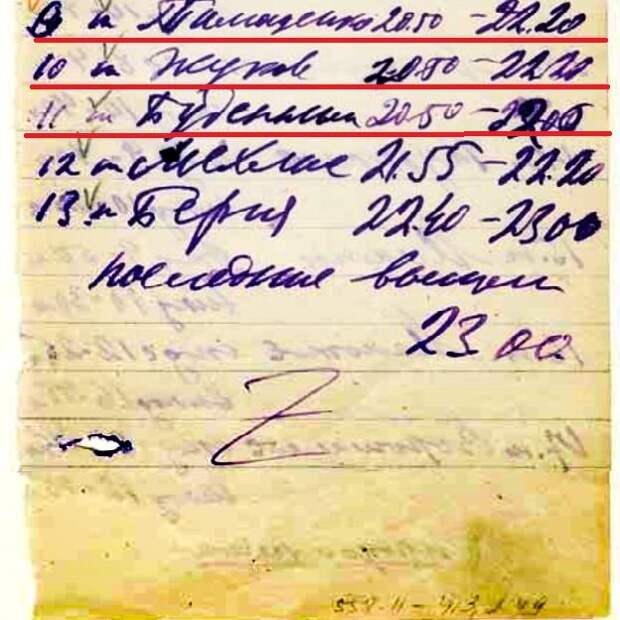 9 т Тимошенко 20.50 - 22.20
10 т Жуков 20.50 - 22.20
11 т Буденный 20.50 - 22.05
12 т Мехлис 21.55 - 22.20
13 т Берия 22.40 - 23 00
последние вышли
23 00